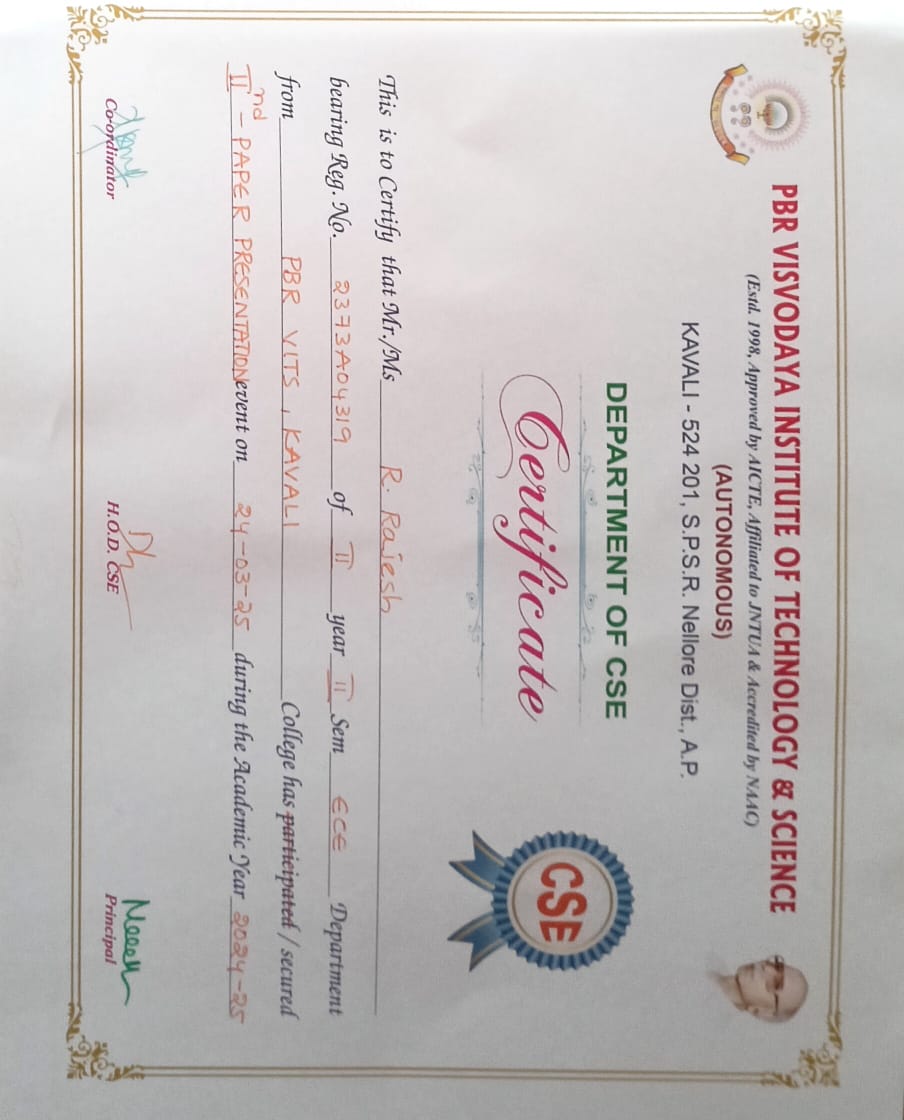 PBR VISVODAYA INSTITUTE OF TECHNOLOGY & SCIENCE
(Estd. 1998, Approved by AICTE, Affiliated to JNTUA & Accredited by NAAC)
(AUTONOMOUS)
KAVALI - 524 201, S.P.S.R. Nellore Dist., A.P.
DEPARTMENT OF CSE
CSE
Certificate
This is to Certify that Mr./Ms R. Rajesh
bearing Reg. No. 2373A04319 of II year II Sem ECE Department
from PBR VITS, KAVALI College has participated / secured
IInd - PAPER PRESENTATION event on 24-03-25 during the Academic Year 2024-25
Co-ordinator
H.O.D. CSE
Principal